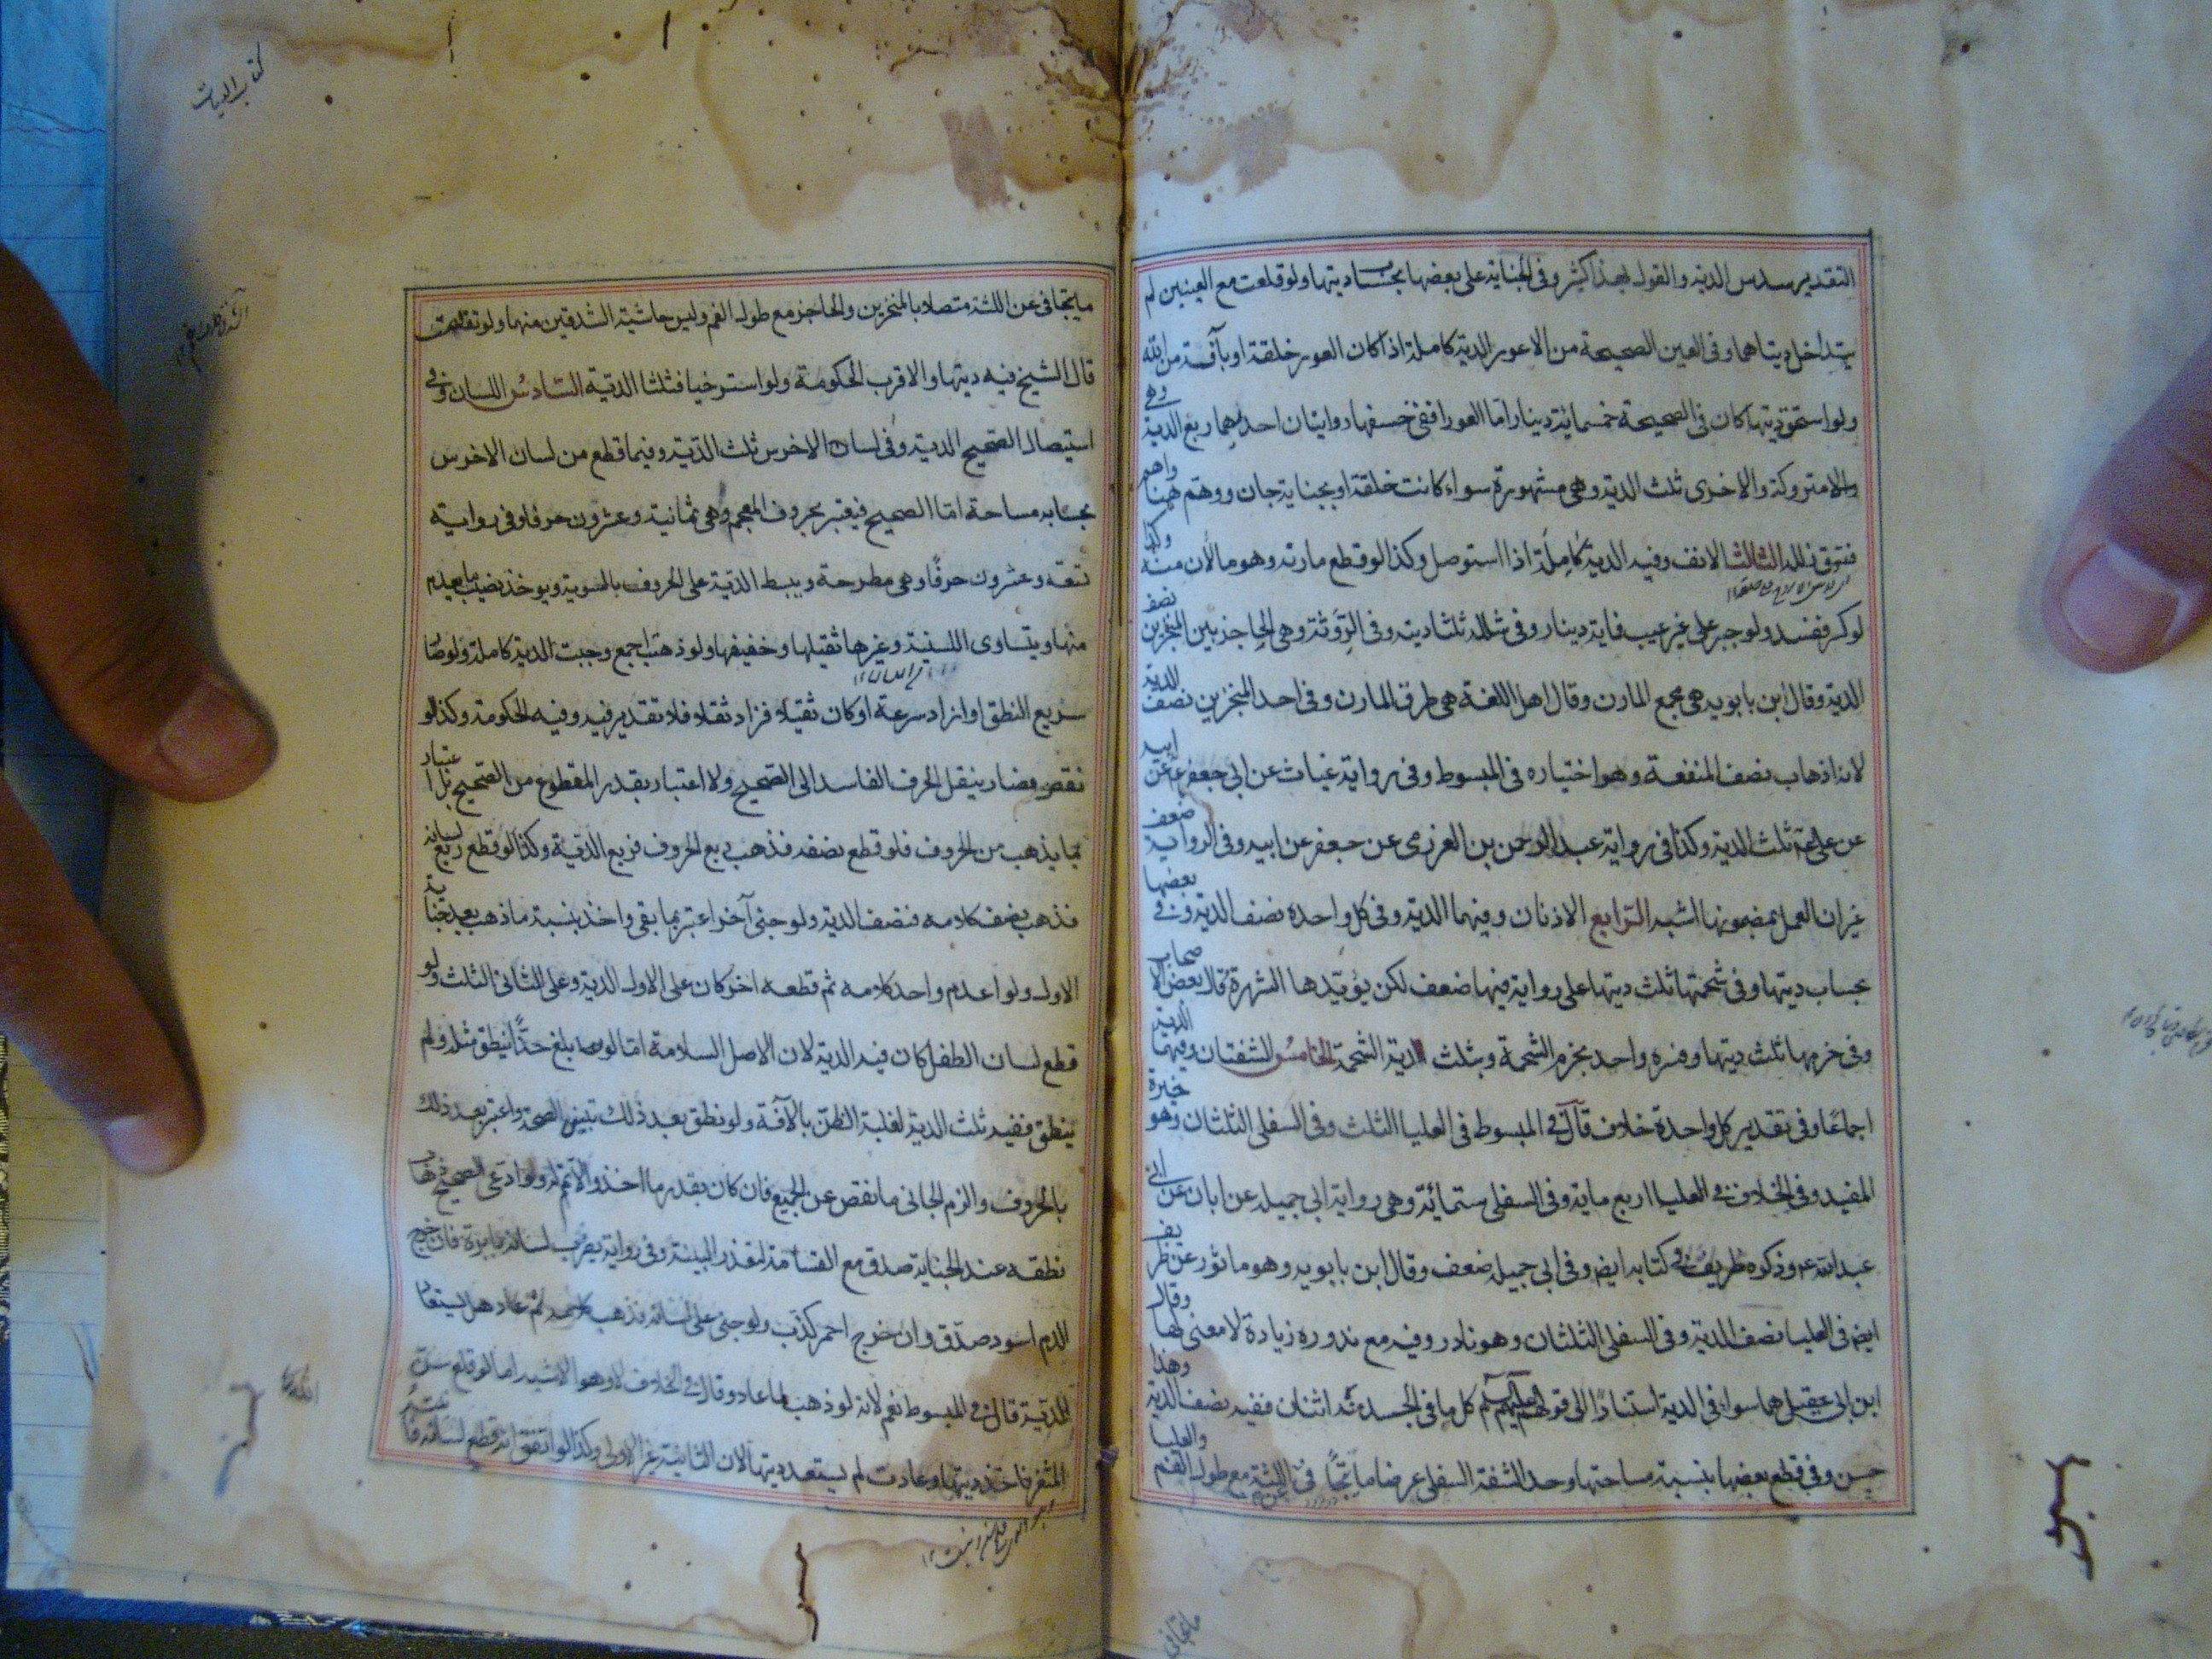 التقدير سدس الدية والقول بهذا كثير وفى الجناية على بعضها بحساب ديتها ولو قلعت مع العينين لم
يتداخل ديتاهما وفى العين الصحيحة من الاعور الدية كاملة اذا كان العور خلقة او بآفة من الله
ولو استحق ديتها كان فى الصحيحة خمسمائة دينار اما العورا ففى خسفها روايتان احديهما ربع الدية وهى
متروكة والاخرى ثلث الدية وهى مشهورة سواء كانت خلقة او بجناية جان ووهم هنا واهم
فتوق زلله الثالث الانف وفيه الدية كاملة اذا استوصل وكذا لو قطع مارنه وهو مالان منه وكذا
لو كسر ففسد ولو جبر على غير عيب فماية دينار وفى شلله ثلثا ديته وفى الروثة وهى الحاجز بين المنخرين نصف
الدية وقال ابن بابويه هى مجمع المارن وقال اهل اللغة هى طرف المارن وفى احد المنخرين نصف الدية
لانه اذهاب نصف المنفعة وهو اختياره فى المبسوط وفى رواية غياث عن ابى جعفر ع عن ابيه
عن على ع ثلث الدية وكذا فى رواية عبد الرحمن بن العزرمى عن جعفر عن ابيه وفى الرواية ضعف
غير ان العمل بمضمونها اشبه الرابع الاذنان وفيهما الدية وفى كل واحدة نصف الدية وفى بعضها
بحساب ديتها وفى شحمتها ثلث ديتها على رواية فيها ضعف لكن يؤيدها الشهرة قال بعض الاصحاب
وفى خرمها ثلث ديتها وفسره واحد بخرم الشحمة وبثلث دية الشحمة الخامس الشفتان وفيهما الدية
اجماعا وفى تقدير كل واحدة خلاف قال فى المبسوط فى العليا الثلث وفى السفلى الثلثان وهو خيرة
المفيد وفى الخلاف فى العليا اربع ماية وفى السفلى ستمائة وهى رواية ابى جميله عن ابان عن ابى
عبد الله ع وذكره ظريف فى كتابه ايضا وفى ابى جميله ضعف وقال ابن بابويه وهو ماثور عن ظريف
ايضا فى العليا نصف الدية وفى السفلى الثلثان وهو نادر وفيه مع ندوره زيادة لا معنى لها وقال
ابن ابى عقيل هما سواء فى الدية استنادا الى قولهم عليهم السلم كل ما فى الجسد منه اثنان ففيه نصف الدية وهذا
حسن وفى قطع بعضها بنسبة مساحتها وحد الشفة السفلى عرضا ما تجافى عن اللثة مع طول الفم والعليا
ما تجافى
كتاب الديات
ما يتجافى عن اللثة متصلا بالمنخرين والحاجز مع طول الفم وليس حاشية الشدقين منهما ولو تقلصت
قال الشيخ فيه ديتها والاقرب الحكومة ولو استرخيا فثلثا الدية السادس اللسان وفى
استيصال الصحيح الدية وفى لسان الاخرس ثلث الدية وفيما قطع من لسان الاخرس
بحسابه مساحة اما الصحيح فيعتبر بحروف المعجم وهى ثمانية وعشرون حرفا وفى رواية
تسعة وعشرون حرفا وهى مطرحة ويبسط الدية على الحروف بالسوية ويوخذ نصيب ما يعدم
منها ويتساوى اللسنية وغيرها ثقيلها وخفيفها ولو ذهبت اجمع وجبت الدية كاملة ولو صار
سريع النطق او ازداد سرعة او كان ثقيلا فزاد ثقلا فلا تقدير فيه وفيه الحكومة وكذا لو
نقص فصار ينقل الحرف الفاسد الى الصحيح ولا اعتبار بقدر المقطوع من الصحيح بل الاعتبار
بما يذهب من الحروف فلو قطع نصفه فذهب ربع الحروف فربع الدية وكذا لو قطع ربع لسانه
فذهب نصف كلامه فنصف الدية ولو جنى آخر اعتبر بما بقى واخذ بنسبة ما ذهب بعد جناية
الاول ولو اعدم واحد كلامه ثم قطعه اخر كان على الاول الدية وعلى الثانى الثلث ولو
قطع لسان الطفل كان فيه الدية لان الاصل السلامة اما لو بلغ حدا ينطق مثله ولم
ينطق ففيه ثلث الدية لغلبة الظن بالآفة ولو نطق بعد ذلك تبين الصحة واعتبر بعد ذلك
بالحروف والزم الجانى ما نقص عن الجميع فان كان بقدر ما اخذ والا تمم له ولو ادعى الصحيح ذهاب
نطقه عند الجناية صدق مع القسامة لتعذر البينة وفى رواية يضرب لسانه بابرة فان خرج
الدم اسود صدق وان خرج احمر كذب ولو جنى على لسانه فذهب كلامه ثم عاد هل يستعاد
الدية قال فى المبسوط نعم لانه لو ذهب لما عاد وقال فى الخلاف لا وهو الاشبه اما لو قلع سن
المثغر فاخذ ديتها وعادت لم يستعد ديتها لان الثانية غير الاولى وكذا لو اتفق انه قطع لسانه فانبته